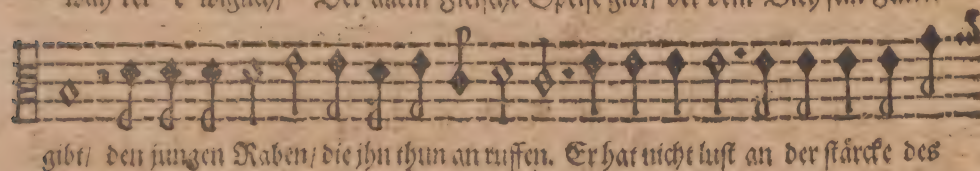 wäh ret e wiglich/ Der allem Fleische Speise gibt/ der dem Vieh sein Futter
gibt/ den jungen Raben/ die jhn thun an ruffen. Er hat nicht lust an der stärcke des